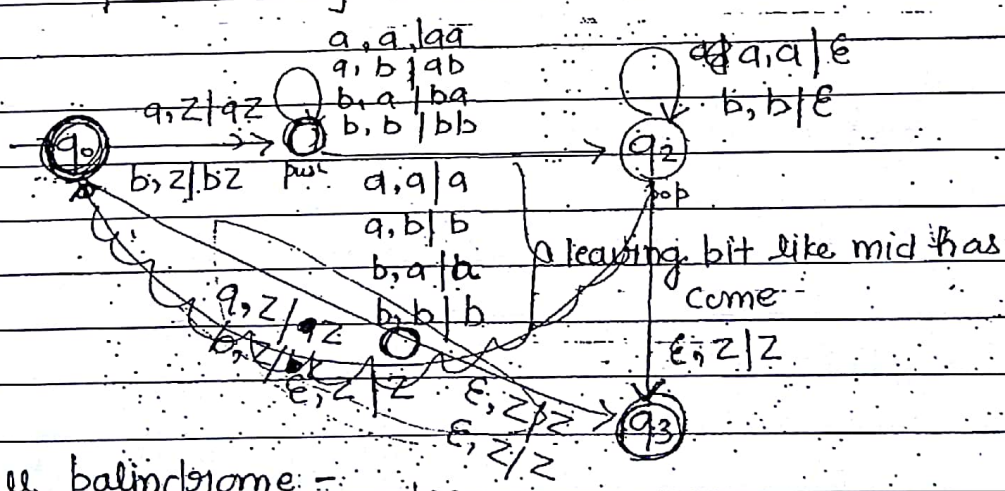 a, a, |aa
a, b | ab
b, a | ba
b, b | bb
a, a | ε
b, b | ε
a, z | az
q0
q2
b, z | bz
push
a, a | a
a, b | b
b, a | a
b, b | b
pop
leaving bit like mid has
come --
a, z / az
b, z /
ε, z | z
ε, z | z
ε, z / z
ε, z / z
q3
palindrome :-